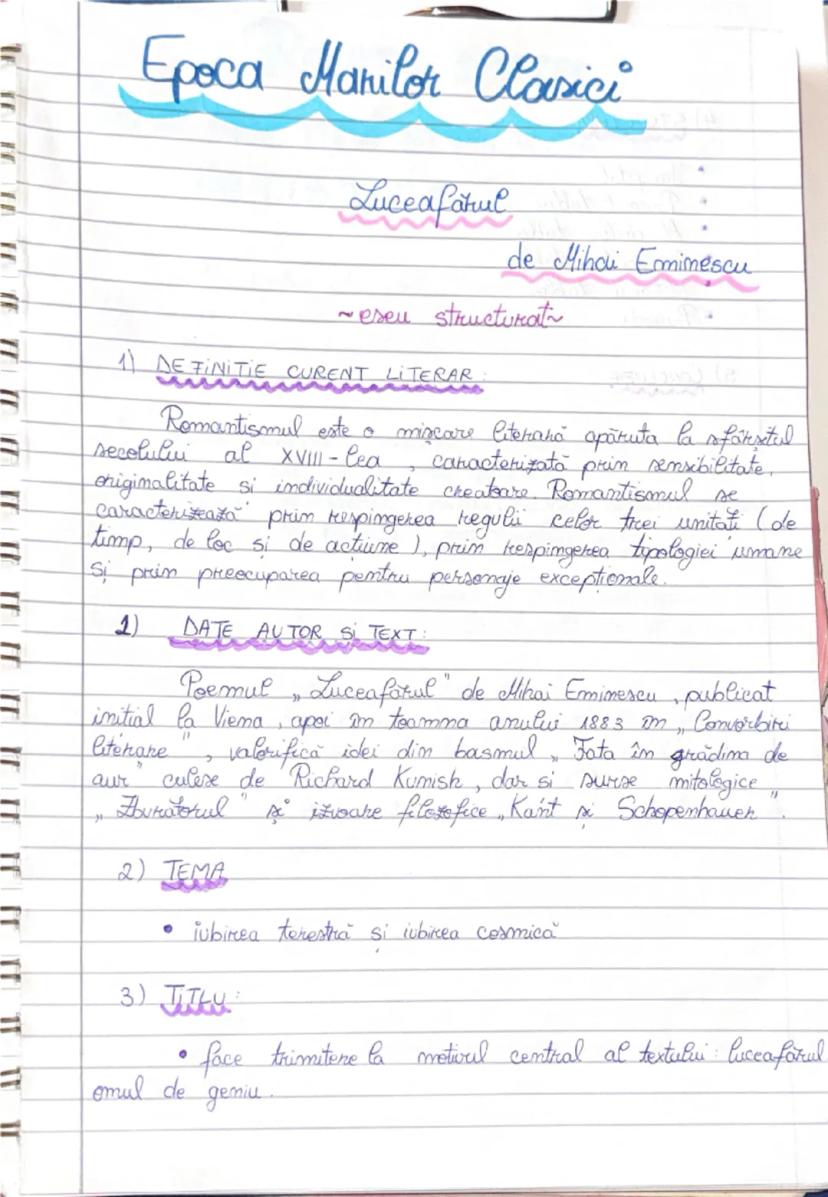 Epoca Marilor Clasici
Luceafărul
de Mihai Eminescu
~eseu structurat~
1) DEFINITIE CURENT LITERAR:
Romantismul este o mișcare literară apăruta la sfârșitul
secolului al XVIII-lea, caracterizată prin sensibilitate,
originalitate si individualitate creatoare. Romantismul se
caracterizează prin respingerea regulii celor trei unități (de
timp, de loc și de acțiune), prin respingerea tipologiei umane
și prin preocuparea pentru personaje excepționale.
1) DATE AUTOR Și TEXT:
Poemul „Luceafărul" de Mihai Eminescu, publicat
initial la Viena, apoi în toamna anului 1883 în „Convorbiri
literare", valorifică idei din basmul „Fata în grădina de
aur" culese de Richard Kunish, dar si surse mitologice
„Zburătorul" și izvoare filozofice „Kant și Schopenhauer".
2) TEMA
• iubirea terestră și iubirea cosmică
3) TITLU:
• face trimitere la motivul central al textului: luceafărul
omul de geniu.